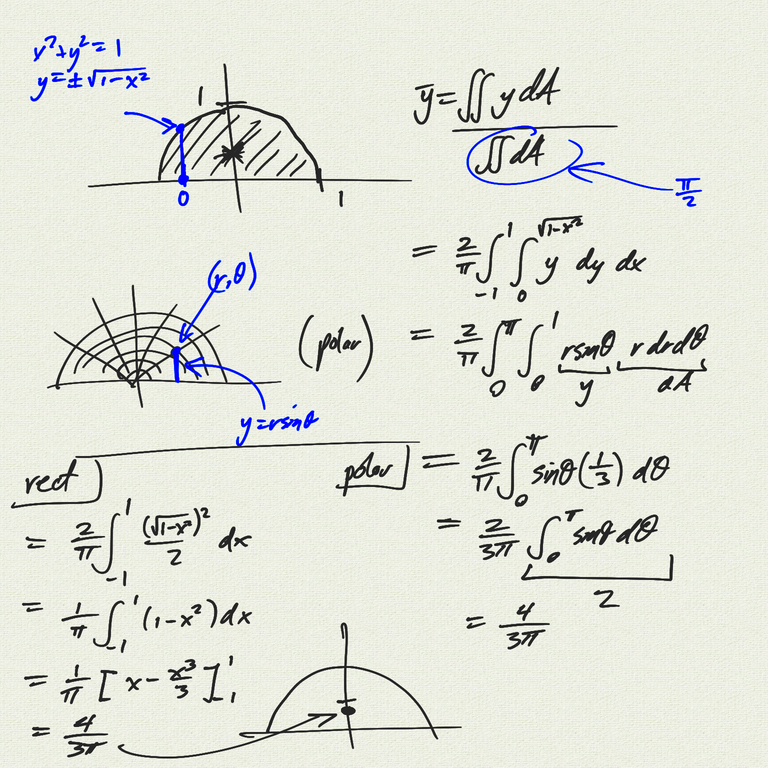 x²+y²=1
y=±√(1-x²)
1
0
1
ȳ = ∬ y dA
∬ dA
π/2
= 2/π ∫_{-1}^{1} ∫_{0}^{√(1-x²)} y dy dx
(r,θ)
(polar)
= 2/π ∫_{0}^{π} ∫_{0}^{1} rsinθ r dr dθ
y dA
y=rsinθ
rect
= 2/π ∫_{-1}^{1} (√(1-x²))²/2 dx
= 1/π ∫_{-1}^{1} (1-x²) dx
= 1/π [x - x³/3]_{-1}^{1}
= 4/3π
polar = 2/π ∫_{0}^{π} sinθ (1/3) dθ
= 2/3π ∫_{0}^{π} sinθ dθ
2
= 4/3π